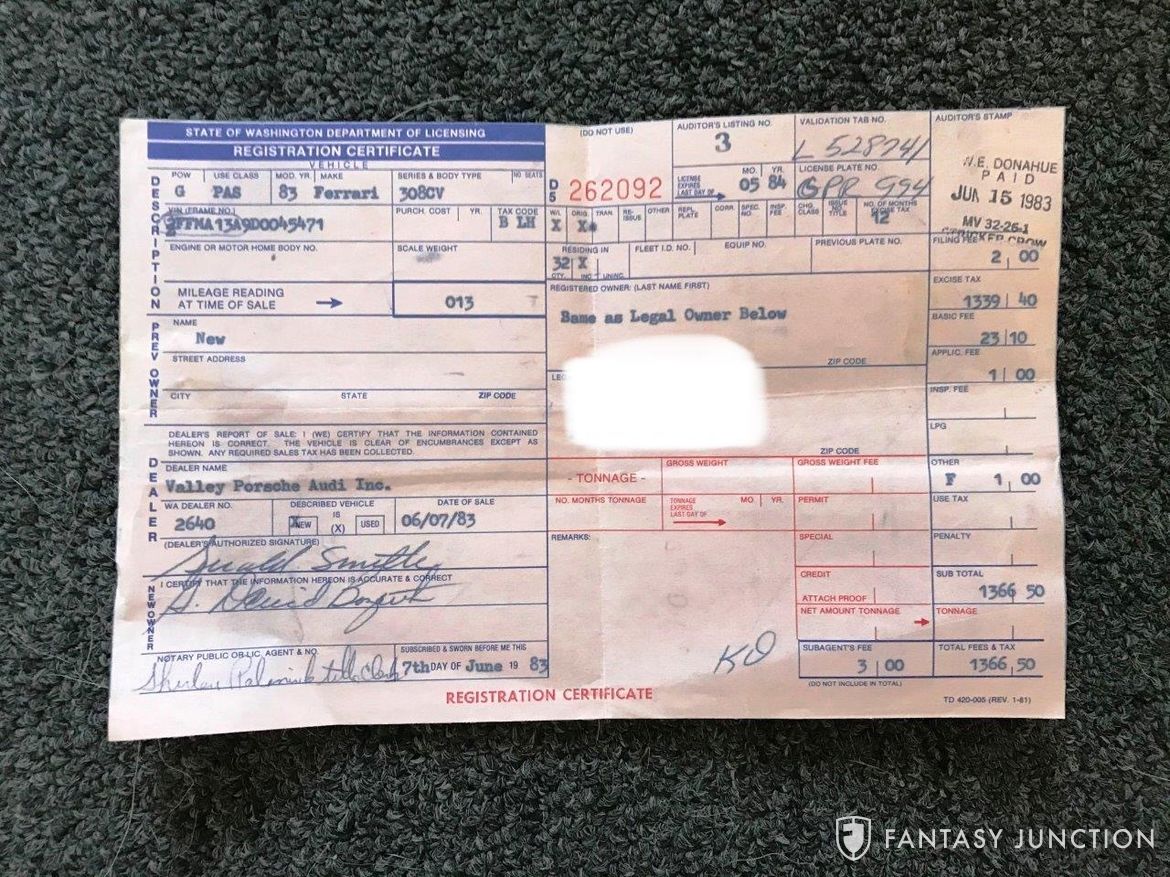 STATE OF WASHINGTON DEPARTMENT OF LICENSING
REGISTRATION CERTIFICATE
VEHICLE
DESCRIPTION
POW USE CLASS MOD. YR. MAKE SERIES & BODY TYPE NO SEATS
G PAS 83 Ferrari 308CV
VIN (FRAME NO.) PURCH. COST YR. TAX CODE
FFMA13A9D0045471 B LH
ENGINE OR MOTOR HOME BODY NO. SCALE WEIGHT
MILEAGE READING
AT TIME OF SALE → 013
PREV OWNER
NAME
New
STREET ADDRESS
CITY STATE ZIP CODE
DEALER'S REPORT OF SALE: I (WE) CERTIFY THAT THE INFORMATION CONTAINED
HEREON IS CORRECT. THE VEHICLE IS CLEAR OF ENCUMBRANCES EXCEPT AS
SHOWN. ANY REQUIRED SALES TAX HAS BEEN COLLECTED.
DEALER
DEALER NAME
Valley Porsche Audi Inc.
WA DEALER NO. DESCRIBED VEHICLE DATE OF SALE
2640 X NEW IS (X) USED 06/07/83
(DEALER'S AUTHORIZED SIGNATURE)
I CERTIFY THAT THE INFORMATION HEREON IS ACCURATE & CORRECT
NEW OWNER
NOTARY PUBLIC OR LIC. AGENT & NO. SUBSCRIBED & SWORN BEFORE ME THIS
7th DAY OF June 19 83
(DO NOT USE)
D5 262092
AUDITOR'S LISTING NO.
3
VALIDATION TAB NO.
L 528741
LICENSE EXPIRES LAST DAY OF MO. YR.
05 84
LICENSE PLATE NO.
994
W/L ORIG. TRAN. RE-ISSUE OTHER REPL. PLATE CORR. SPEC. NO. INSP. FEE CHG. CLASS ISSUE NO TITLE NO. OF MONTHS EXCISE TAX
X X 12
RESIDING IN FLEET I.D. NO. EQUIP NO. PREVIOUS PLATE NO.
32 X
CTY. INC UNINC.
REGISTERED OWNER: (LAST NAME FIRST)
Same as Legal Owner Below
ZIP CODE
LEG
ZIP CODE
- TONNAGE - GROSS WEIGHT GROSS WEIGHT FEE
NO. MONTHS TONNAGE TONNAGE EXPIRES LAST DAY OF MO. YR. PERMIT
REMARKS: SPECIAL
CREDIT
ATTACH PROOF
NET AMOUNT TONNAGE →
KO
SUBAGENT'S FEE
3 00
(DO NOT INCLUDE IN TOTAL)
AUDITOR'S STAMP
W.E. DONAHUE
PAID
JUN 15 1983
MV 32-26-1
FILING FEE
2 00
EXCISE TAX
1339 40
BASIC FEE
23 10
APPLIC. FEE
1 00
INSP. FEE
LPG
OTHER
F 1 00
USE TAX
PENALTY
SUB TOTAL
1366 50
TONNAGE
TOTAL FEES & TAX
1366 50
REGISTRATION CERTIFICATE
TD 420-005 (REV. 1-81)
FANTASY JUNCTION